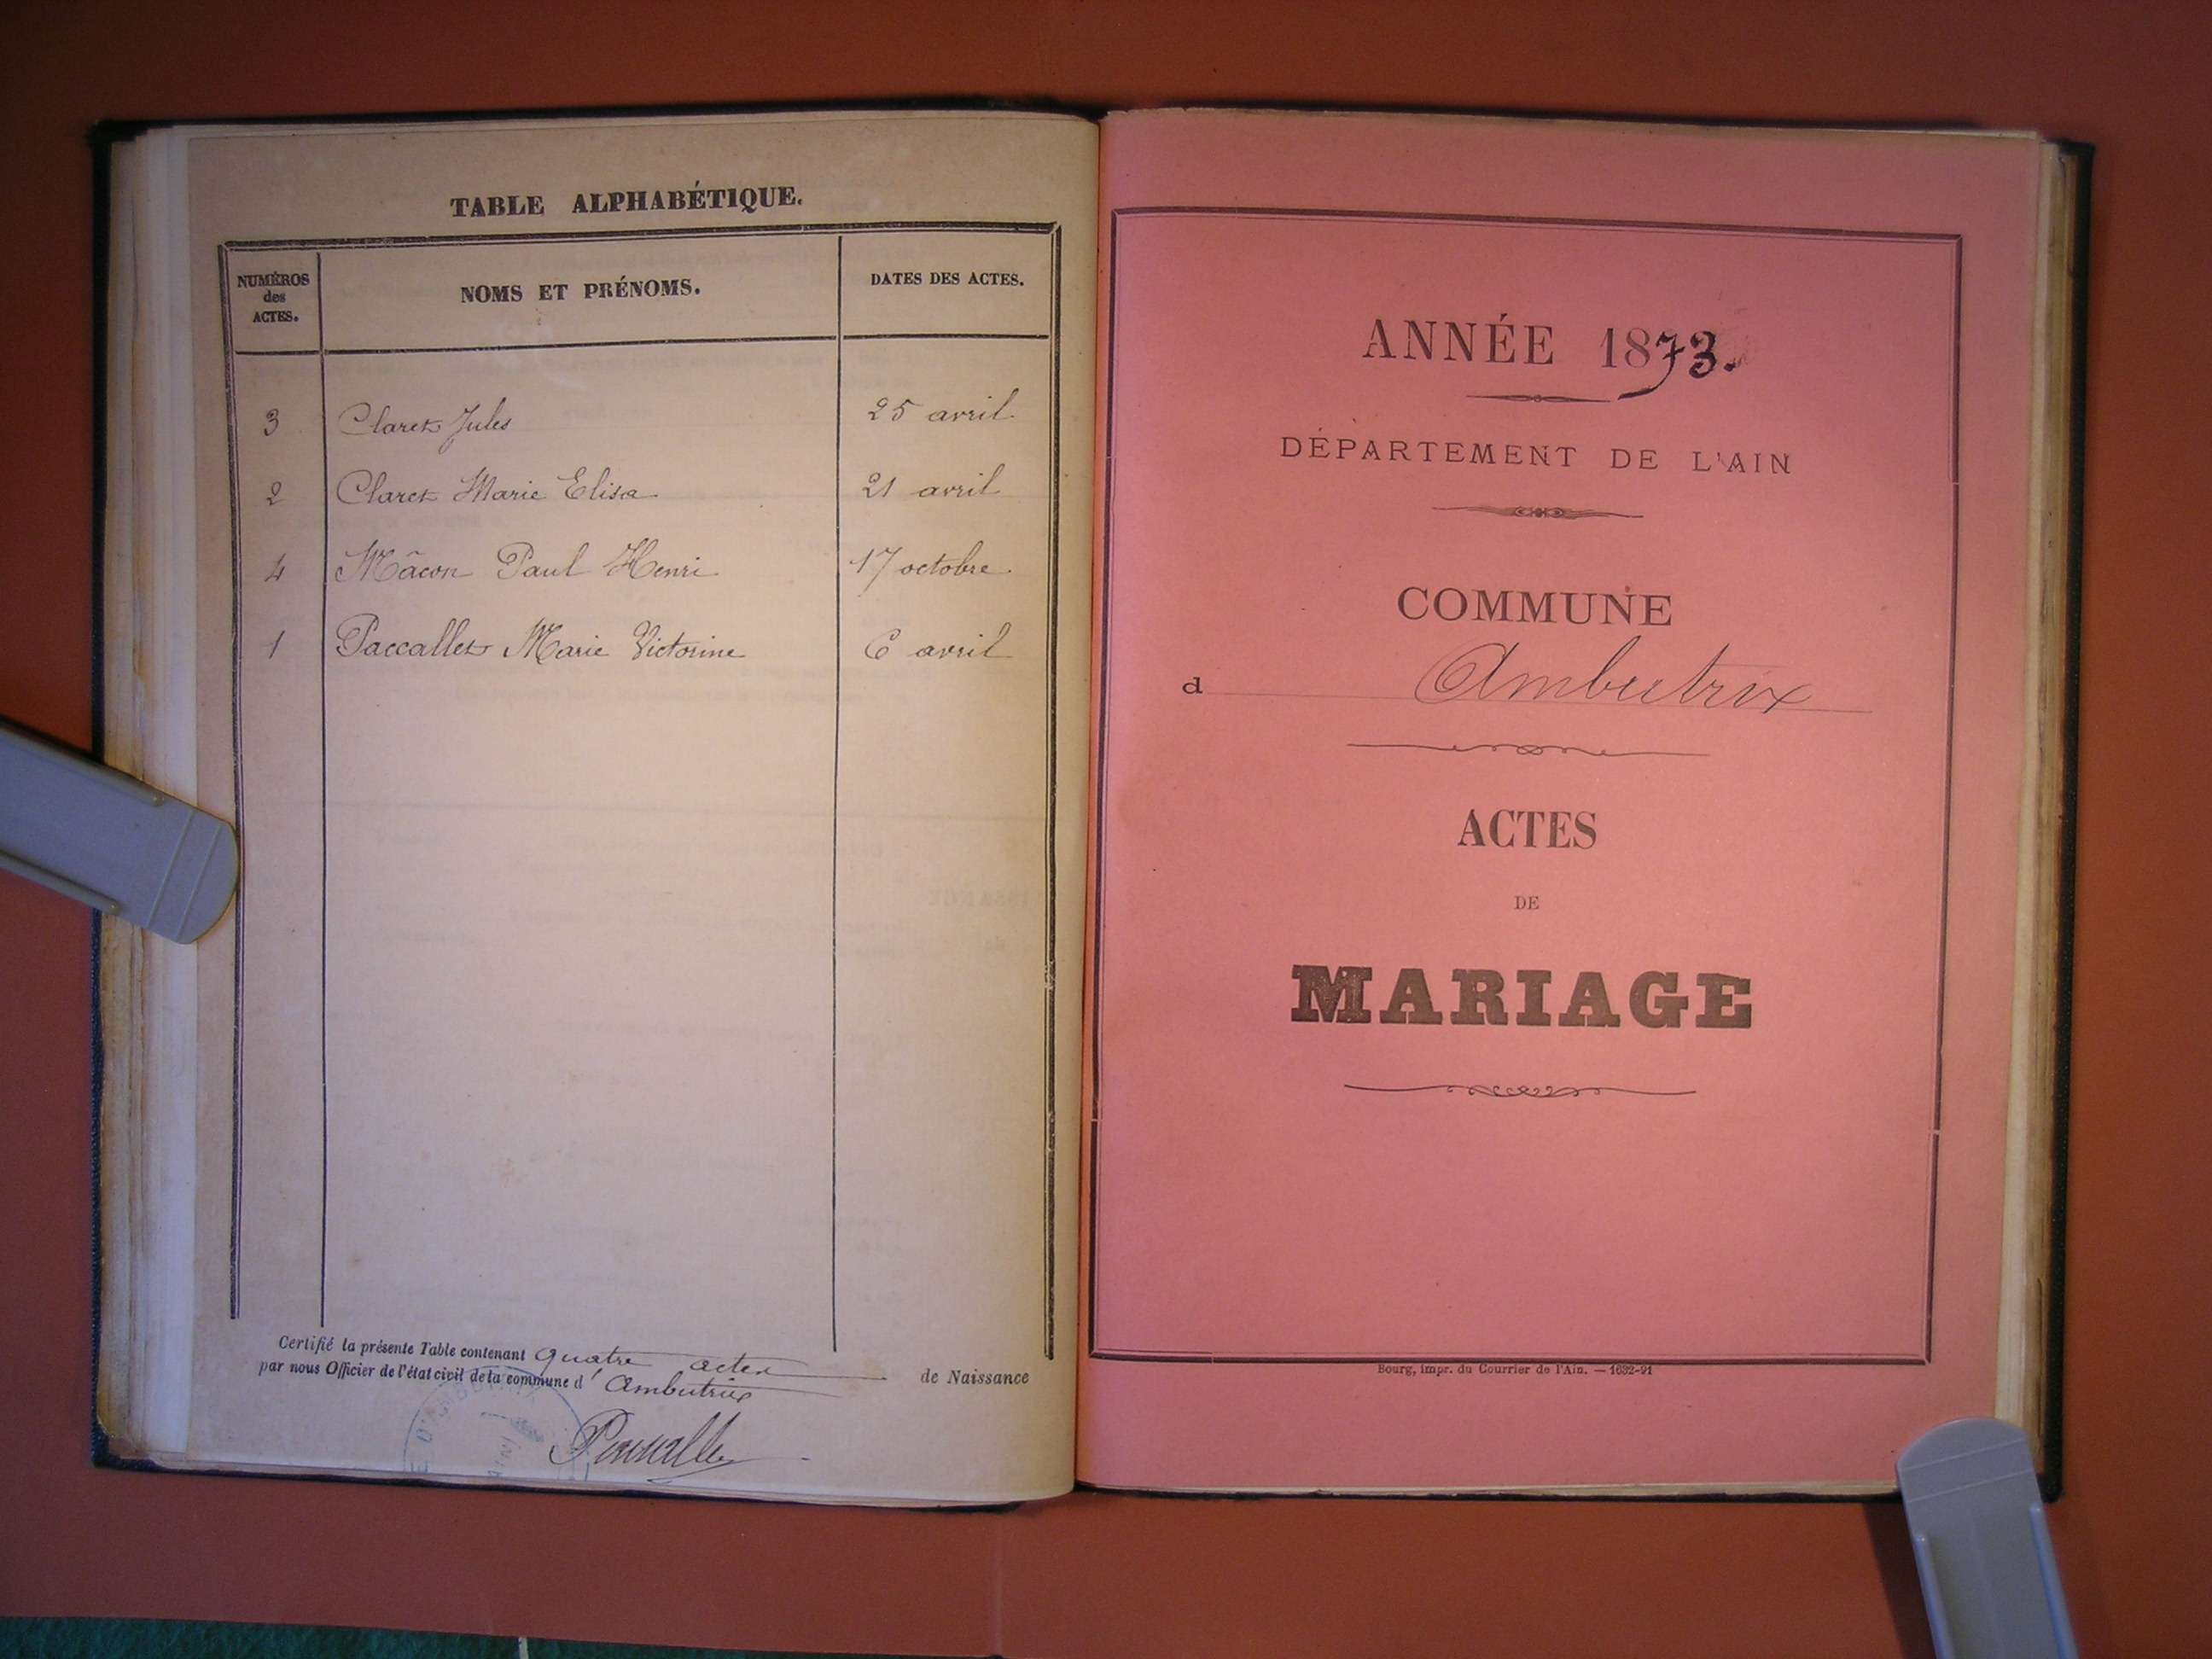 TABLE ALPHABÉTIQUE.
NUMÉROS
des
ACTES.
NOMS ET PRÉNOMS.
DATES DES ACTES.
3 Claret Jules 25 avril
2 Claret Marie Elisa 21 avril
4 Mâcon Paul Henri 17 octobre
1 Paccallet Marie Victorine 6 avril
Certifié la présente Table contenant quatre actes de Naissance
par nous Officier de l'état civil de la commune d'Ambutrix
ANNÉE 1873.
DÉPARTEMENT DE L'AIN
COMMUNE
d Ambutrix
ACTES
DE
MARIAGE
Bourg, impr. du Courrier de l'Ain. — 1632-91